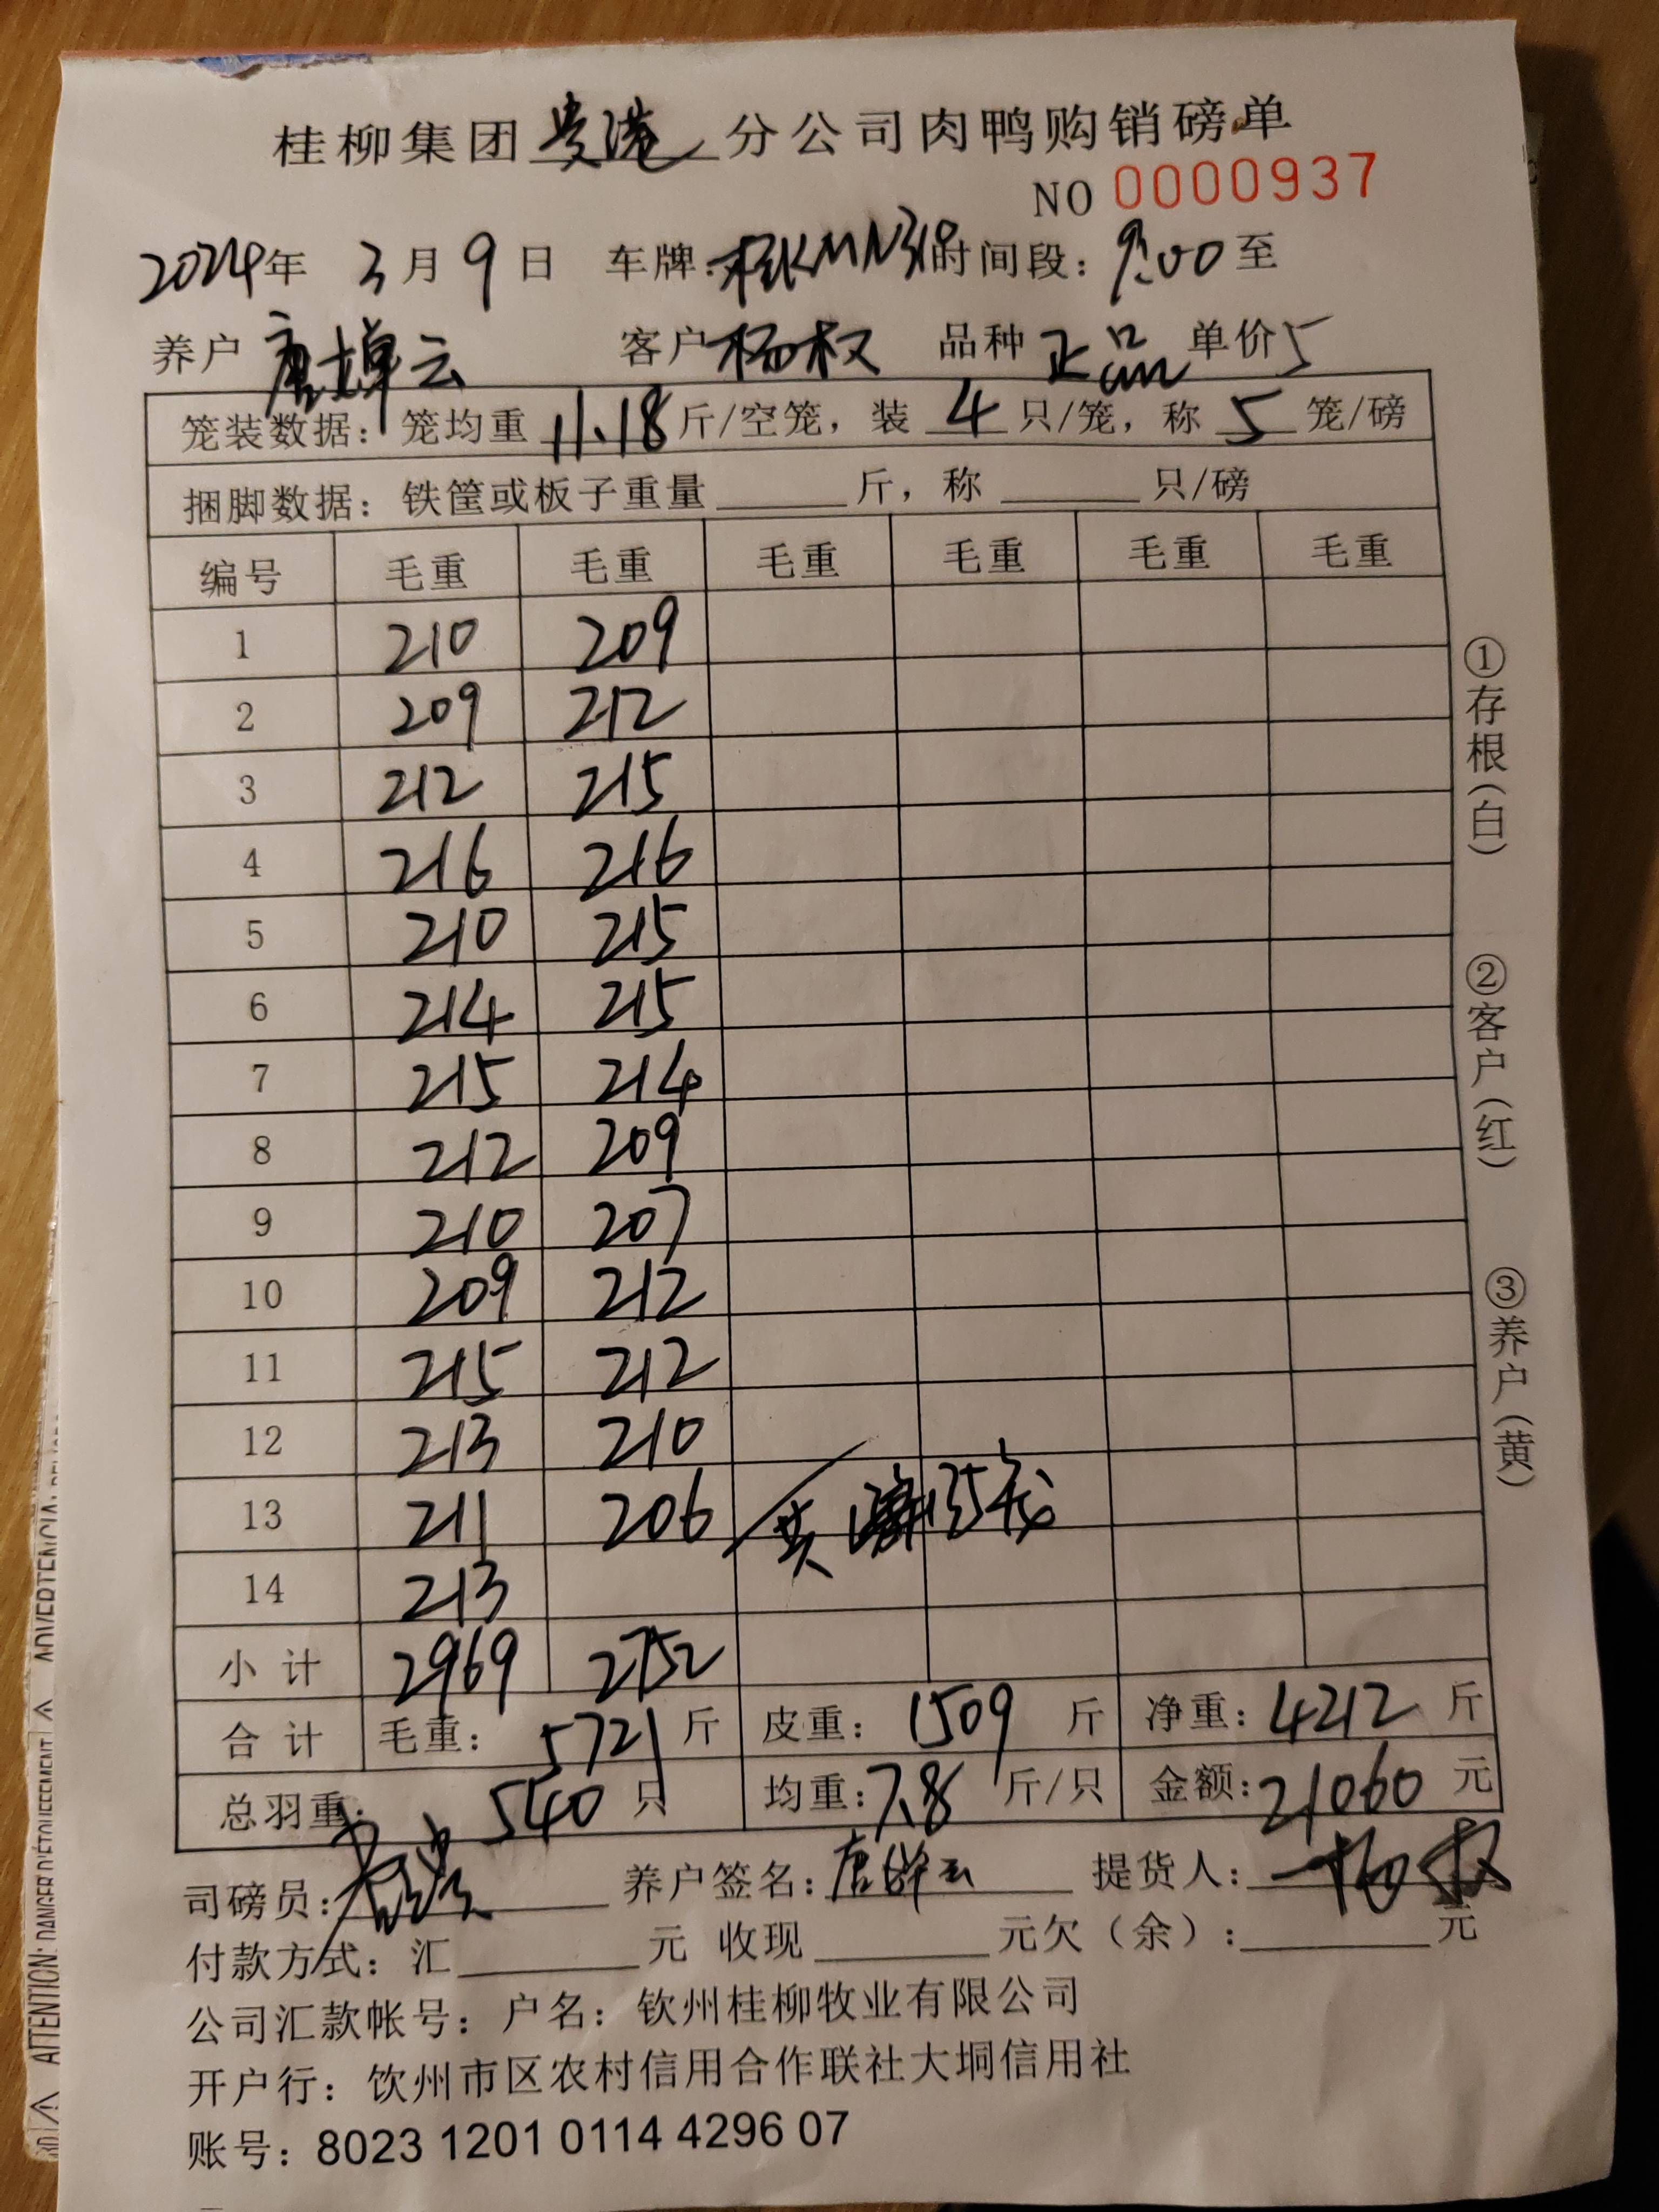 桂柳集团贵港分公司肉鸭购销磅单
NO 0000937
2024年 3月9日 车牌:桂KMN319时间段:9:00至
养户 唐 云 客户杨权 品种 正品 单价5
笼装数据:笼均重 11.18斤/空笼,装 4 只/笼,称 5 笼/磅
捆脚数据:铁筐或板子重量 斤,称 只/磅
编号 毛重 毛重 毛重 毛重 毛重 毛重
1 210 209
2 209 212
3 212 215
4 216 216
5 210 215
6 214 215
7 215 214
8 212 209
9 210 207
10 209 212
11 215 212
12 213 210
13 211 206 共 135
14 213
小计 2969 2752
合计 毛重:5721斤 皮重:1509斤 净重:4212斤
总羽重: 540只 均重:7.8斤/只 金额:21060元
司磅员: 养户签名:唐 云 提货人:杨权
付款方式:汇 元 收现 元欠(余): 元
公司汇款帐号:户名:钦州桂柳牧业有限公司
开户行:饮州市区农村信用合作联社大垌信用社
账号:8023 1201 0114 4296 07
①存根(白)
②客户(红)
③养户(黄)
ATTENTION: DANGER D'ÉTOUFFEMENT